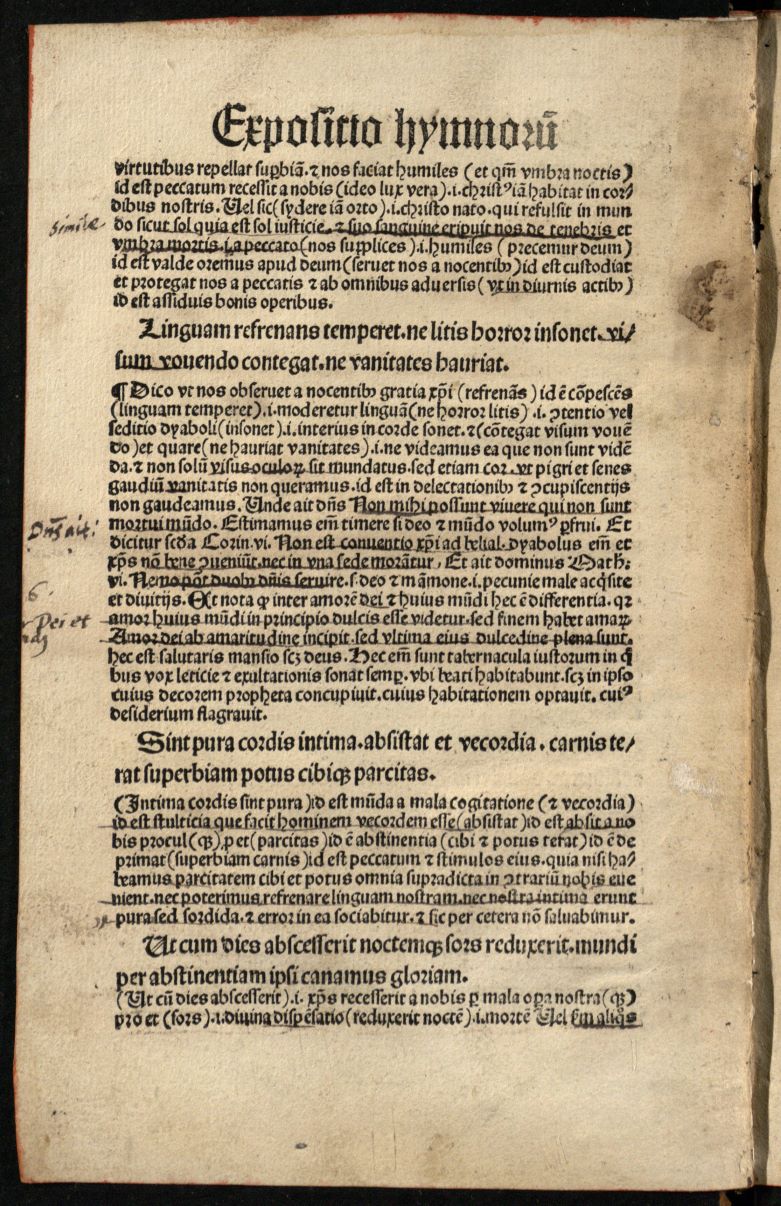 Expositio hymnorū
virtutibus repellat suꝑbiā. ⁊ nos faciat humiles (et qm̄ vmbra noctis)
id est peccatum recessit a nobis (ideo lux vera) .i. christꝰ iā habitat in cor/
dibus nostris. Uel sic (sydere iā orto) .i. christo nato. qui refulsit in mun
do sicut sol quia est sol iusticie. ⁊ suo sanguine eripuit nos de tenebris et
vmbra mortis. i. a peccato (nos supplices) .i. humiles (precemur deum)
id est valde oremus apud deum (seruet nos a nocentibꝫ) id est custodiat
et protegat nos a peccatis ⁊ ab omnibus aduersis (vt in diurnis actibꝫ)
id est assiduis bonis operibus.
Linguam refrenans temperet. ne litis horror insonet. vi/
sum vouendo contegat. ne vanitates hauriat.
¶ Dico vt nos obseruet a nocentibꝫ gratia xp̄i (refrenās) id ē cōpescēs
(linguam temperet) .i. moderetur linguā (ne horror litis) .i. ꝯtentio vel
seditio dyaboli (insonet) .i. interius in corde sonet. ⁊ (cōtegat visum vouē
do) et quare (ne hauriat vanitates) .i. ne videamus ea que non sunt vidē
da. ⁊ non solū visus oculoꝝ sit mundatus. sed etiam cor. vt pigri et senes
gaudiū vanitatis non queramus. id est in delectationibꝫ ⁊ ꝯcupiscentijs
non gaudeamus. Unde ait dn̄s Non mihi possunt viuere qui non sunt
mortui mūdo. Estimamus em̄ timere si deo ⁊ mūdo volumꝰ ꝑfrui. Et
dicitur scd̄a Corin. vi. Non est conuentio xp̄i ad belial. Dyabolus em̄ et
xp̄s nō bene ꝯueniūt. nec in vna sede morātur, Et ait dominus Math:
vi. Nemo pōt duobꝫ dn̄is seruire. s. deo ⁊ māmone. i. pecunie male acq̄site
et diuitijs. Et nota ꝙ inter amorē dei ⁊ huius mūdi hec ē differentia. qꝛ
amor huius mūdi in principio dulcis esse videtur. sed finem habet amaꝝ
Amor dei ab amaritudine incipit. sed vltima eius dulcedine plena sunt.
hec est salutaris mansio scꝫ deus. Hec em̄ sunt tabernacula iustorum in q̄
bus vox leticie ⁊ exultationis sonat semꝑ. vbi beati habitabunt. scꝫ in ipso
cuius decorem propheta concupiuit. cuius habitationem optauit. cuiꝰ
desiderium flagrauit.
Sint pura cordis intima. absistat et vecordia. carnis te/
rat superbiam potus cibiqꝫ parcitas.
(Intima cordis sint pura) id est mūda a mala cogitatione (⁊ vecordia)
id est stulticia que facit hominem vecordem esse (absistat) id est absit a no
bis procul (qꝫ) ꝓ et (parcitas) id ē abstinentia (cibi ⁊ potus terat) id ē de
primat (superbiam carnis) id est peccatum ⁊ stimulos eius. quia nisi ha/
beamus parcitatem cibi et potus omnia supradicta in ꝯtrariū nobis eue
nient. nec poterimus refrenare linguam nostram. nec nostra intima erunt
pura sed sordida. ⁊ error in ea sociabitur. ⁊ sic per cetera nō saluabimur.
Ut cum dies abscesserit noctemqꝫ sors reduxerit. mundi
per abstinentiam ipsi canamus gloriam.
(Ut cū dies abscesserit) .i. xp̄s recesserit a nobis ꝑ mala oꝑa nostra (qꝫ)
pro et (sors) .i. diuina dispēsatio (reduxerit noctē) .i. mortē Uel
Simile
Dn̄s ait:
6.
Dei et